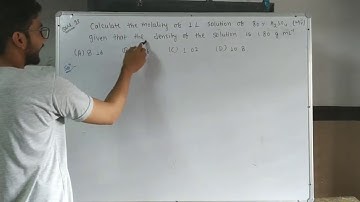 Calculate the molality of 1 L solution of 80% H2SO4 (w/v)
given that the density of the solution is 1.80 g mL⁻¹
(A) 8.16 (C) 1.02 (D) 10.8